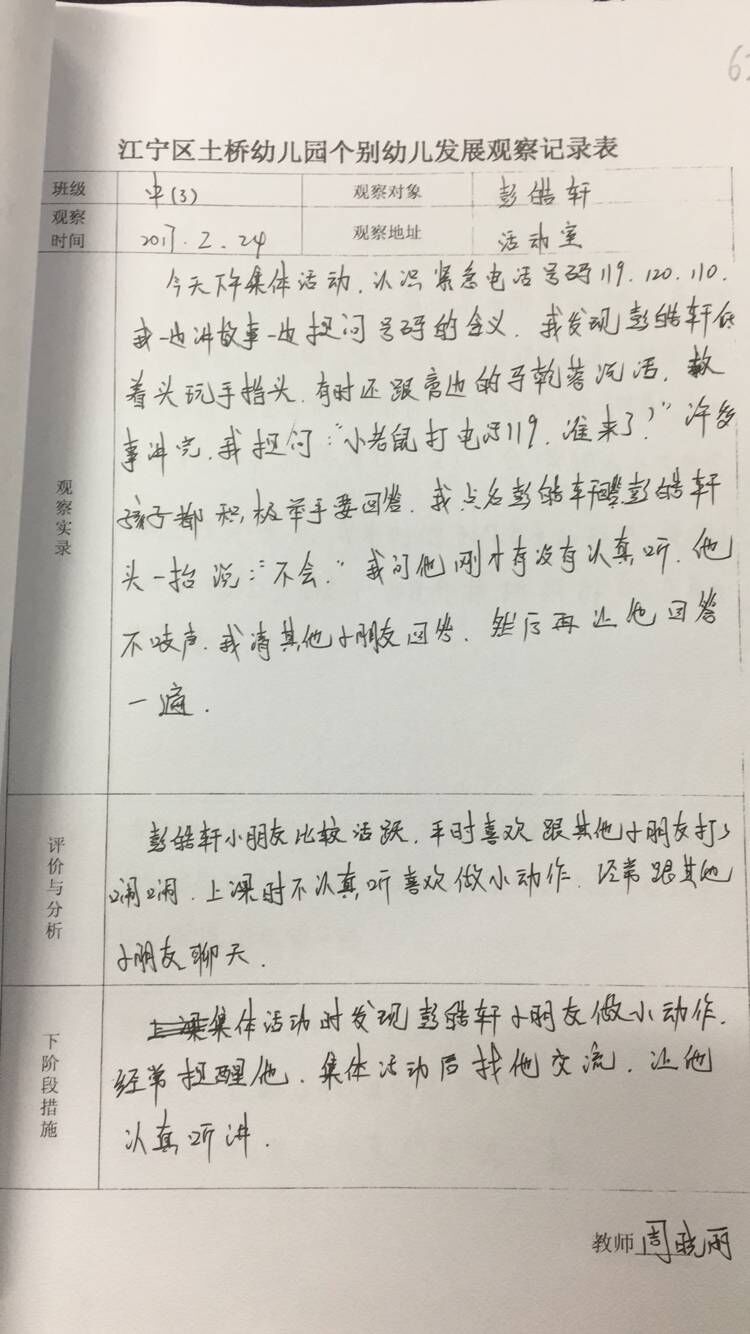 江宁区土桥幼儿园个别幼儿发展观察记录表
班级 中(3) 观察对象 彭皓轩
观察时间 2017.2.24 观察地址 活动室
观察实录
今天下午集体活动,认识紧急电话号码119.120.110.
我一边讲故事一边提问号码的含义.我发现彭皓轩低
着头玩手指头.有时还跟旁边的马乾蓉说话,故
事讲完,我提问:"小老鼠打电话119,谁来了?"许多
孩子都积极举手要回答.我点名彭皓轩 彭皓轩
头一抬说:"不会."我问他刚才有没有认真听.他
不吱声.我请其他小朋友回答.然后再让他回答
一遍.
评价与分析
彭皓轩小朋友比较活跃,平时喜欢跟其他小朋友打打
闹闹.上课时不认真听喜欢做小动作.经常跟其他
小朋友聊天.
下阶段措施
集体活动时发现彭皓轩小朋友做小动作.
经常提醒他.集体活动后找他交流.让他
认真听讲.
教师 周晓丽